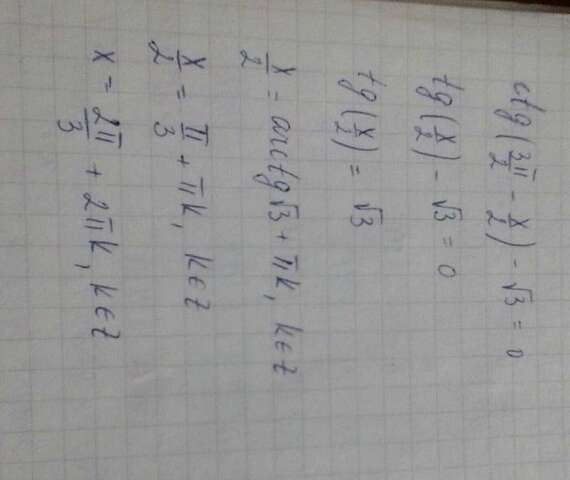 ctg(3π/2 - x/2) - √3 = 0
tg(x/2) - √3 = 0
tg(x/2) = √3
x/2 = arctg√3 + πk, k∈z
x/2 = π/3 + πk, k∈z
x = 2π/3 + 2πk, k∈z